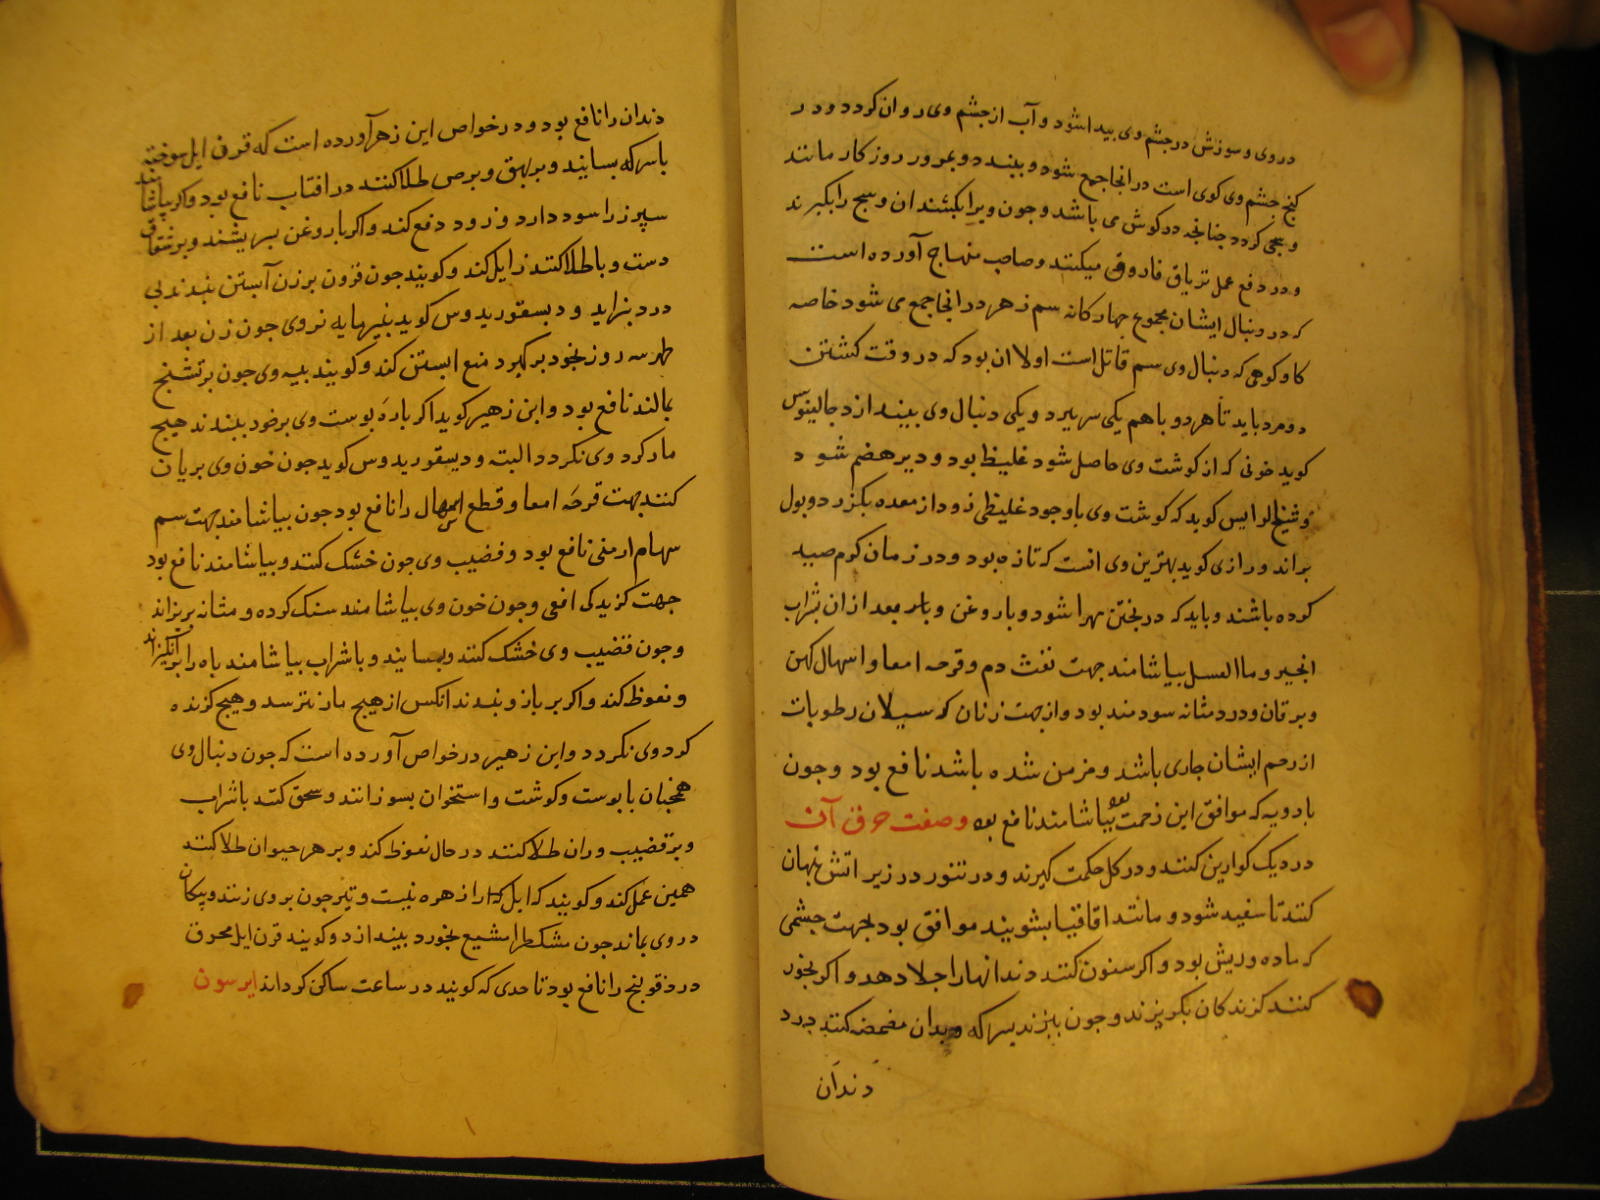 در وی و سوزش در چشم وی پیدا شود و آب از چشم وی روان کردد و در
کنج چشم وی کوی است در انجا جمع شود و ببندد و بمرور روزکار مانند
وسخی کردد چنانچه در کوش می باشد و چون ویرا بکشند ان وسخ را بکیرند
و در دفع عمل تریاق فاروق میکند و صاحب منهاج آورده است
که در دنبال ایشان مجموع چهارکانه سم زهر در انجا جمع می شود خاصه
کاو کوهی که دنبال وی سم قاتل است اولا ان بود که در وقت کشتن
دو مرد باید تا هر دو باهم یکی سر ببرد و یکی دنبال وی بیندازد جالینوس
کوید خونی که از کوشت وی حاصل شود غلیظ بود و دیر هضم شود
و شیخ الرایس کوید که کوشت وی باوجود غلیظی زود از معده بکزرد و بول
براند و رازی کوید بهترین وی انست که تازه بود و در زمان کرم صید
کرده باشند و باید که در پختن مهرا شود و با روغن و بعد از ان شراب
انجیر و ما العسل بیاشامند جهت نفث دم و قرحه امعا و اسهال کهن
و یرقان و درد مثانه سودمند بود و از جهت زنان که سیلان رطوبات
از رحم ایشان جاری باشد و مزمن شده باشد نافع بود و چون
بادویه که موافق این زحمت بود بیاشامند نافع بود وصفت حرق آن
در دیک کوارین کنند و در کل حکمت کیرند و در تنور در زیر اتش پنهان
کنند تا سفید شود و مانند اقاقیا بشویند موافق بود بجهت چشمی
که ماده و ریش بود و اکر سنون کنند دندانها را جلا دهد و اکر بخور
کنند کزندکان بکریزند و چون بپزند بسرکه و بدان مضمضه کنند درد
دندان
دندان را نافع بود و در خواص ابن زهر آورده است که قرن ایل سوخته
باسرکه بسایند و بر بهق و برص طلا کنند در افتاب نافع بود و اکر بیاشامند
سپرز را سود دارد و زود دفع کند و اکر با روغن بسریشند و بر شقاق
دست و پا طلا کنند زایل کند و کویند چون قرون بر زن آبستن بندند بی
درد بزاید و دیسقوریدوس کوید پنیرمایه نر وی چون زن بعد از
طهر سه روز بخود برکیرد منع ابستن کند و کویند پیه وی چون بر تشنج
بمالند نافع بود و ابن زهیر کوید اکر پارهٔ پوست وی بر خود ببندند هیچ
مار کرد وی نکردد البته و دیسقوریدوس کوید چون خون وی بریان
کنند جهت قرحه امعا و قطع اسهال را نافع بود چون بیاشامند جهت سم
سهام ارمنی نافع بود و قضیب وی چون خشک کنند و بیاشامند نافع بود
جهت کزیدکی افعی و چون خون وی بیاشامند سنک کرده و مثانه بریزاند
و چون قضیب وی خشک کنند و بسایند و با شراب بیاشامند باه را برانکیزاند
و نعوظ کند و اکر بر بازو بندند انکس از هیچ مار نترسد و هیچ کزنده
کرد وی نکردد و ابن زهیر در خواص آورده است که چون دنبال وی
همچنان با پوست و کوشت و استخوان بسوزانند و سحق کنند با شراب
و بر قضیب و ران طلا کنند در حال نعوظ کند و بر هر حیوان طلا کنند
همین عمل کند و کویند که ایل را زهره نیست و تیر چون بر وی زنند و پیکان
در وی بماند چون مشکطرامشیع بخورد بیندازد و کویند قرن ایل محرق
درد قولنج را نافع بود تا حدی که کویند در ساعت ساکن کرداند ایرسون